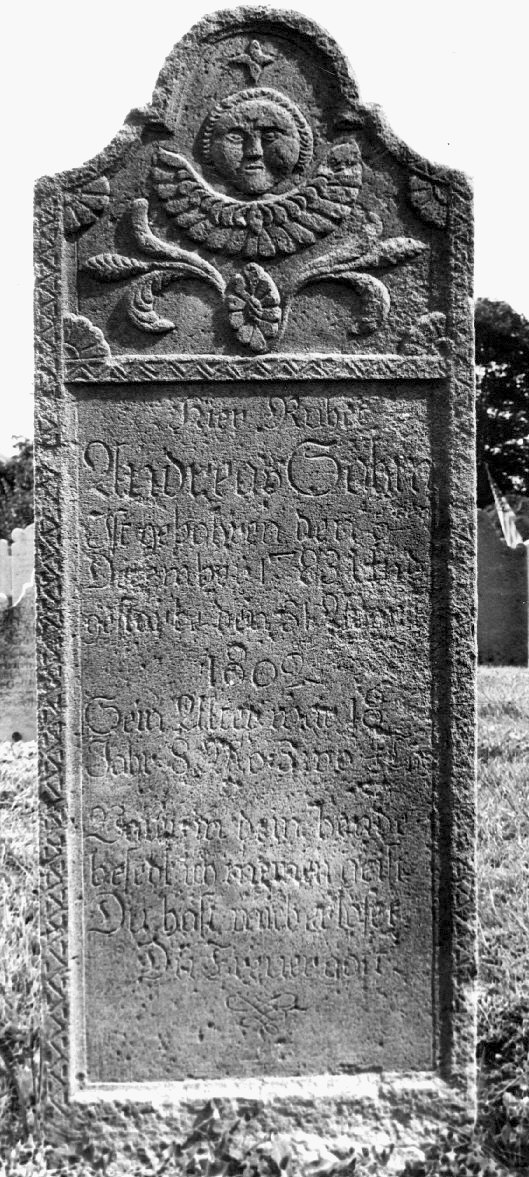 Hier Ruhet
Andreas Sohn
Ist gebohren den 5
Decemb: 1783 Und
gestarbe den 21 August
1802
Sein Alter war 18
Jahr 8 Mo: zwo
Vatter in dein hende
befehl ich meinen geist
Du hast mich erlöset
Du Treuer gott